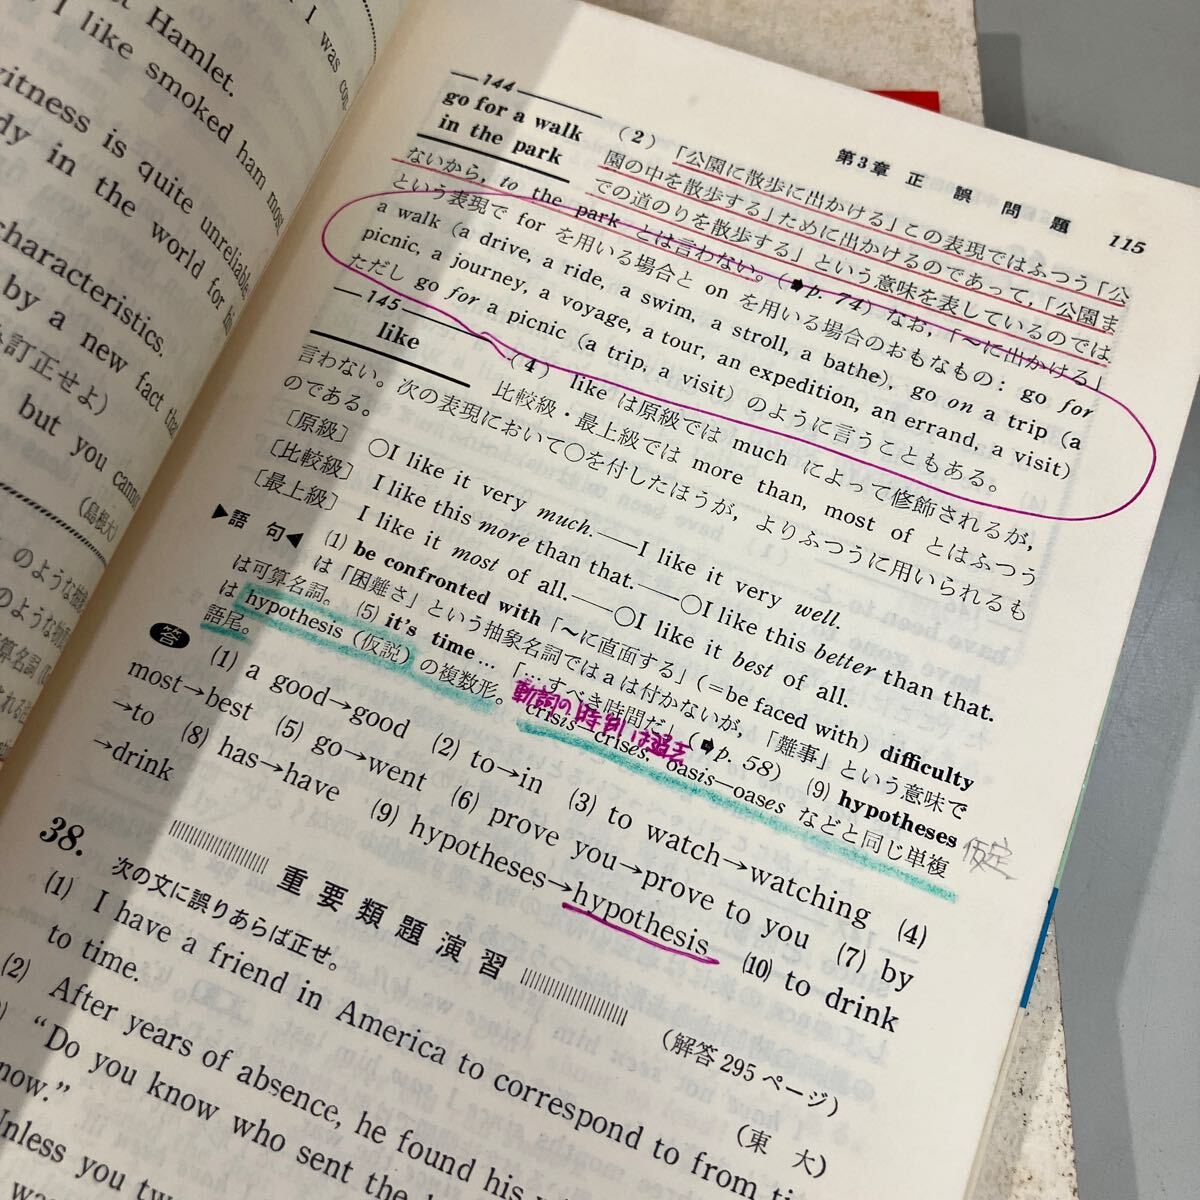 t Hamlet.
I like smoked ham most
I was con-
witness is quite unreliable
dy in the world for hi
characteristics.
by a new fact tha
訂正せよ)
but you cannot
(島根大)
第3章 正 誤 問 題 115
144
go for a walk
in the park
(2) 「公園に散歩に出かける」この表現ではふつう「公
園の中を散歩する」ために出かけるのであって,「公園ま
での道のりを散歩する」という意味を表しているのでは
ないから, to the park とは言わない。(p. 74) なお,「〜に出かける」
という表現で for を用いる場合と on を用いる場合のおもなもの: go for
a walk (a drive, a ride, a swim, a stroll, a bathe), go on a trip (a
picnic, a journey, a voyage, a tour, an expedition, an errand, a visit)
ただし go for a picnic (a trip, a visit) のように言うこともある。
145
like
(4) like は原級では much によって修飾されるが,
比較級・最上級では more than, most of とはふつう
言わない。次の表現において○を付したほうが,よりふつうに用いられるも
のである。
〔原級〕 ○I like it very much.——I like it very well.
〔比較級〕 I like this more than that.——○I like this better than that.
〔最上級〕 I like it most of all.——○I like it best of all.
▶語 句◀ (1) be confronted with「〜に直面する」(=be faced with) difficulty
は「困難さ」という抽象名詞では a は付かないが,「難事」という意味で
は可算名詞。 (5) it's time…「…すべき時間だ」(p. 58) (9) hypotheses
は hypothesis (仮説) の複数形。 crisis—crises, oasis—oases などと同じ単複
語尾。
動詞の時制は過去
仮定
答 (1) a good→good (2) to→in (3) to watch→watching (4)
most→best (5) go→went (6) prove you→prove to you (7) by
→to (8) has→have (9) hypotheses→hypothesis (10) to drink
→drink
重要類題演習
38. 次の文に誤りあらば正せ。 (解答295ページ)
(1) I have a friend in America to correspond to from ti
to time. (東 大)
(2) After years of absence, he found his
"Do you know who sent the
now."
Unless you tw